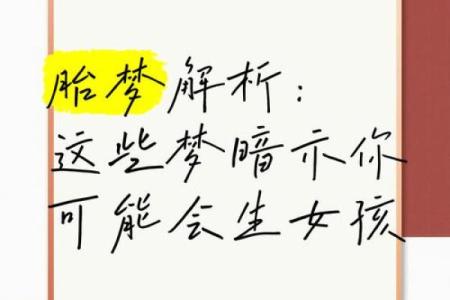 胎梦解析：
这些梦暗示你
可能会生女孩